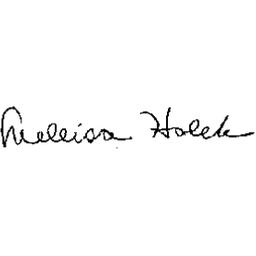 Melissa Holek